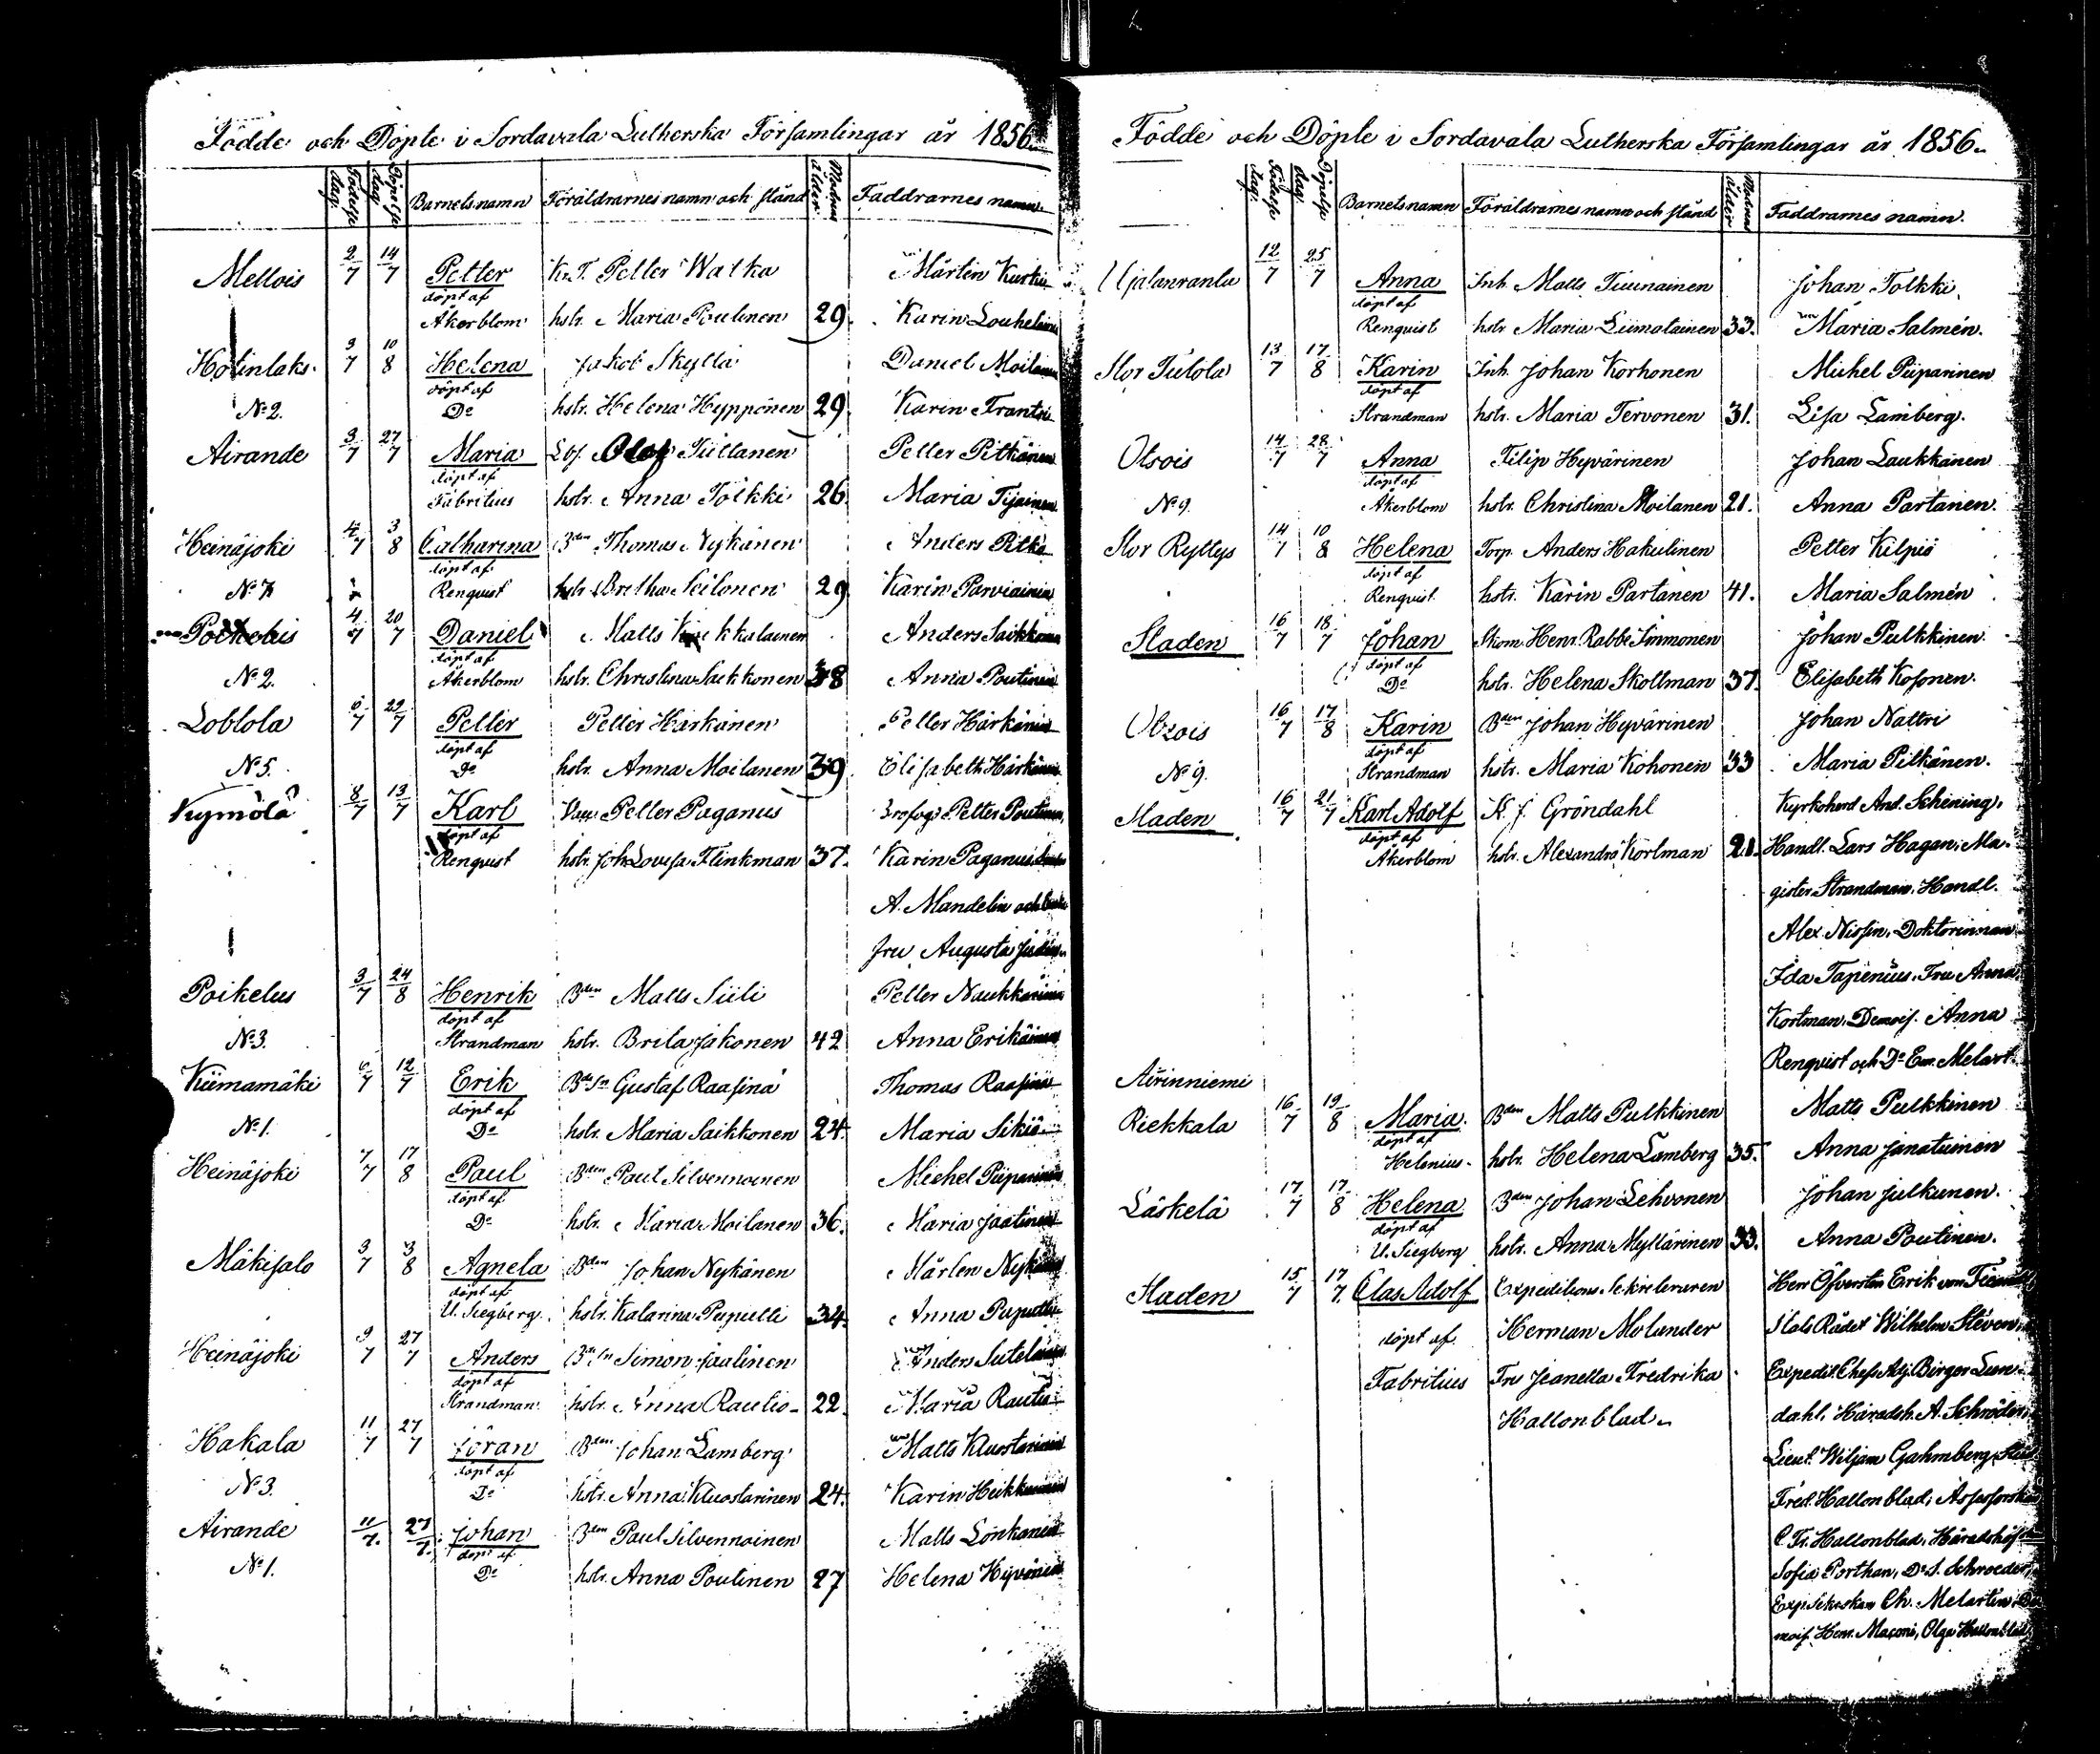 Födde och Döpte i Sordavala Lutherska Församlingar år 1856.
Födelse dag. Döpelse dag. Barnets namn Föräldrarnes namn och stånd Modrens ålder Faddrarnes namn
Mellois 2/7 14/7 Petter Kr. T. Petter Watka Mårten Kurki
döpt af
Åkerblom hstr. Maria Poutinen 29. Karin Louhelainen
Hotinlaks. 3/7 10/8 Helena Jakob Skyttä Daniel Moilanen
döpt af
No 2. Do hstr. Helena Hyppönen 29. Karin Frantsi
Airande 3/7 27/7 Maria Los. Olof Tiittanen Petter Pitkänen
döpt af
Fabritius hstr. Anna Tolkki 26. Maria
Heinäjoki 4/7 3/8 Catharina Bden Thomas Nykänen Anders Pitkä
döpt af
No 7 Renquist hstr. Bretha Seilonen 29 Karin Parviainen
Poikelus 4/7 20/7 Daniel Matts Anders Saikkonen
döpt af
No 2. Åkerblom hstr. Christina Saikkonen 38 Anna Poutinen
Loblola 6/7 29/7 Petter Petter Härkänen Petter Härkänen
döpt af
No 5. Do hstr. Anna Moilanen 39. Elisabeth Härkänen
Kymölä 8/7 13/7 Karl Petter Paganus Petter Poutinen,
döpt af
Renqvist hstr. Joh. Lovisa Flinkman 37. Karin Paganus
A. Mandelin och
Fru Augusta
Poikelus 3/7 24/8 Henrik Bden Matts Siili Petter Naukkarinen
döpt af
No 3. Strandman hstr. Brita Jakonen 42 Anna Erikäinen
Kiimamäki 6/7 12/7 Erik Bdesn Gustaf Raasina Thomas Raasina
döpt af
No 1. Do hstr. Maria Saikkonen 24. Maria Sikiö
Heinäjoki 7/7 17/8 Paul Bden Paul Silvennoinen Michel Piiparinen
döpt af
Do hstr. Maria Moilanen 36. Maria Jaatinen
Mäkisalo 3/7 3/8 Agneta Bden Johan Nykänen Mårten Nykänen
döpt af
U. Siegberg. hstr. Katarina Puputti 34. Anna Puputti
Heinäjoki 9/7 27/7 Anders Bdesn Simon Jaatinen Anders Sutelainen
döpt af
Strandman. hstr. Anna Rautio 22. Maria Rautia
Hakala 11/7 27/7 Jöran Bden Johan Lamberg Matts Kluostarinen
döpt af
No 3. Do hstr. Anna Kluostarinen 24. Karin Heikkinen
Airande 11/7. 27/7. Johan Bden Paul Silvennoinen Matts Lonkanen
döpt af
No 1. Do hstr. Anna Poutinen 27 Helena Hyvönen
Födde och Döpte i Sordavala Lutherska Församlingar år 1856.
Födelse dag. Döpelse dag. Barnets namn Föräldrarnes namn och stånd Modrens ålder Faddrarnes namn.
12/7 25/7 Anna Inh. Matts Tiuinainen Johan Tolkki.
döpt af
Renquist hstr Maria Liimatainen 33. Maria Salmén.
Stor Tulola 13/7 17/8 Karin Inh. Johan Korhonen Michel Piiparinen
döpt af
Strandman hstr. Maria Tervonen 31. Lisa Lamberg.
Otsois 14/7 28/7 Anna Filip Hyvärinen Johan Laukkanen
döpt af
No 9. Åkerblom hstr. Christina Moilanen 21. Anna Partanen.
Stor Ryttys 14/7 10/8 Helena Torp. Anders Hakulinen Petter Kilpiö
döpt af
Renqvist hstr. Karin Partanen 41. Maria Salmén
Staden 16/7 18/7 Johan Skom. Henr. Rabbe Immonen Johan Pulkkinen
döpt af
Do hstr. Helena Skottman 37. Elisabeth Kosonen.
Otsois 16/7 17/8 Karin Bden Johan Hyvärinen Johan Nattri
döpt af
No 9. Strandman hstr. Maria Kohonen 33 Maria Pitkänen.
Staden 16/7 21/7 Karl Adolf K. J. Gröndahl Kyrkoherd And. Schening,
döpt af
Åkerblom hstr. Alexandra Kortman 21. Handl. Lars Hagan, Ma-
gister Strandman, Handl.
Alex Nissin, Doktorinnan
Ida Tapenius, Fru Anna
Kortman, Demois. Anna
Renqvist och Do Em. Melart.
Airinniemi
Riekkala 16/7 19/8 Maria. Bden Matts Pulkkinen Matts Pulkkinen
döpt af
Helenius. hstr. Helena Lamberg 35. Anna Janatuinen
Läskelä 17/7 17/8 Helena Bden Johan Lehvonen Johan Julkunen.
döpt af
U. Siegberg hstr. Anna Myllärinen 33. Anna Poutinen.
Staden 15/7 17/7. Clas Adolf Expeditions Sekreteraren Herr Öfversten Erik von
döpt af Herman Molander Stats Rådet Wilhelm Stéven,
Fabritius Fru Jeanella Fredrika Expedit. Chefs Adj. Birger Lun-
Hallonblad. dahl, Häradsh. A. Schröder,
Lieut. Wiljam Gahmberg,
Fred. Hallonblad,
C. Fr. Hallonblad,
Sofia Porthan, Do S. Schroeder,
Ch. Melartin,
mois. Henr. Masoni, Olga Hallonblad.